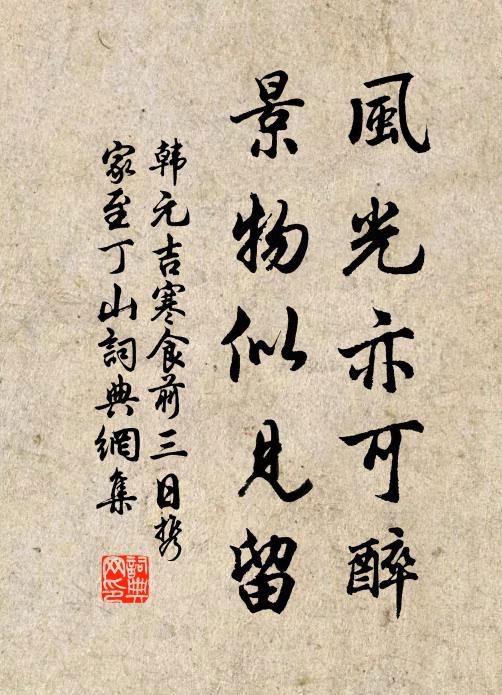 風光亦可醉
景物似見留
韩元吉寒食前三日携
家至丁山詞典網集
詞典
网印